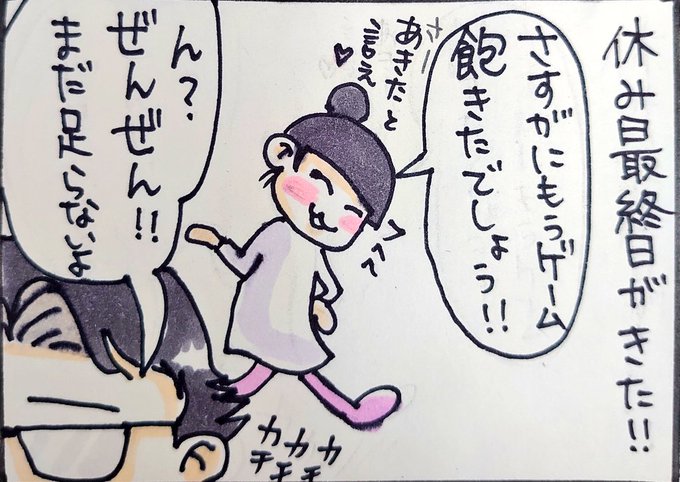 休み日最終日がきた!!
さすがにもうゲーム
飽きたでしょう!!
さー
あきたと
言え♡
ん?
ぜんぜん!!
まだ足らないよ
カチ
カチ
カチ